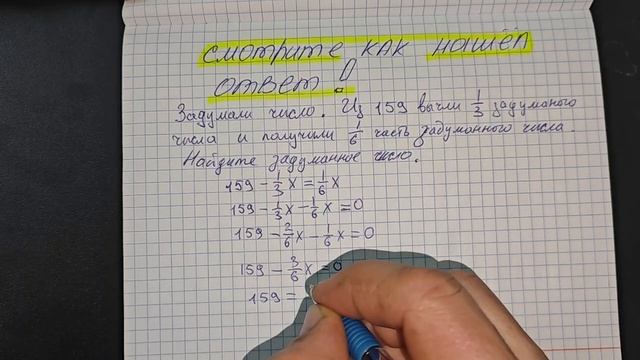 смотрите как нашёл
ответ!
Задумали число. Из 159 вычли 1/3 задуманого
числа и получили 1/6 часть задуманного числа.
Найдите задуманное число.
159 - 1/3 x = 1/6 x
159 - 1/3 x - 1/6 x = 0
159 - 2/6 x - 1/6 x = 0
159 - 3/6 x = 0
159 =